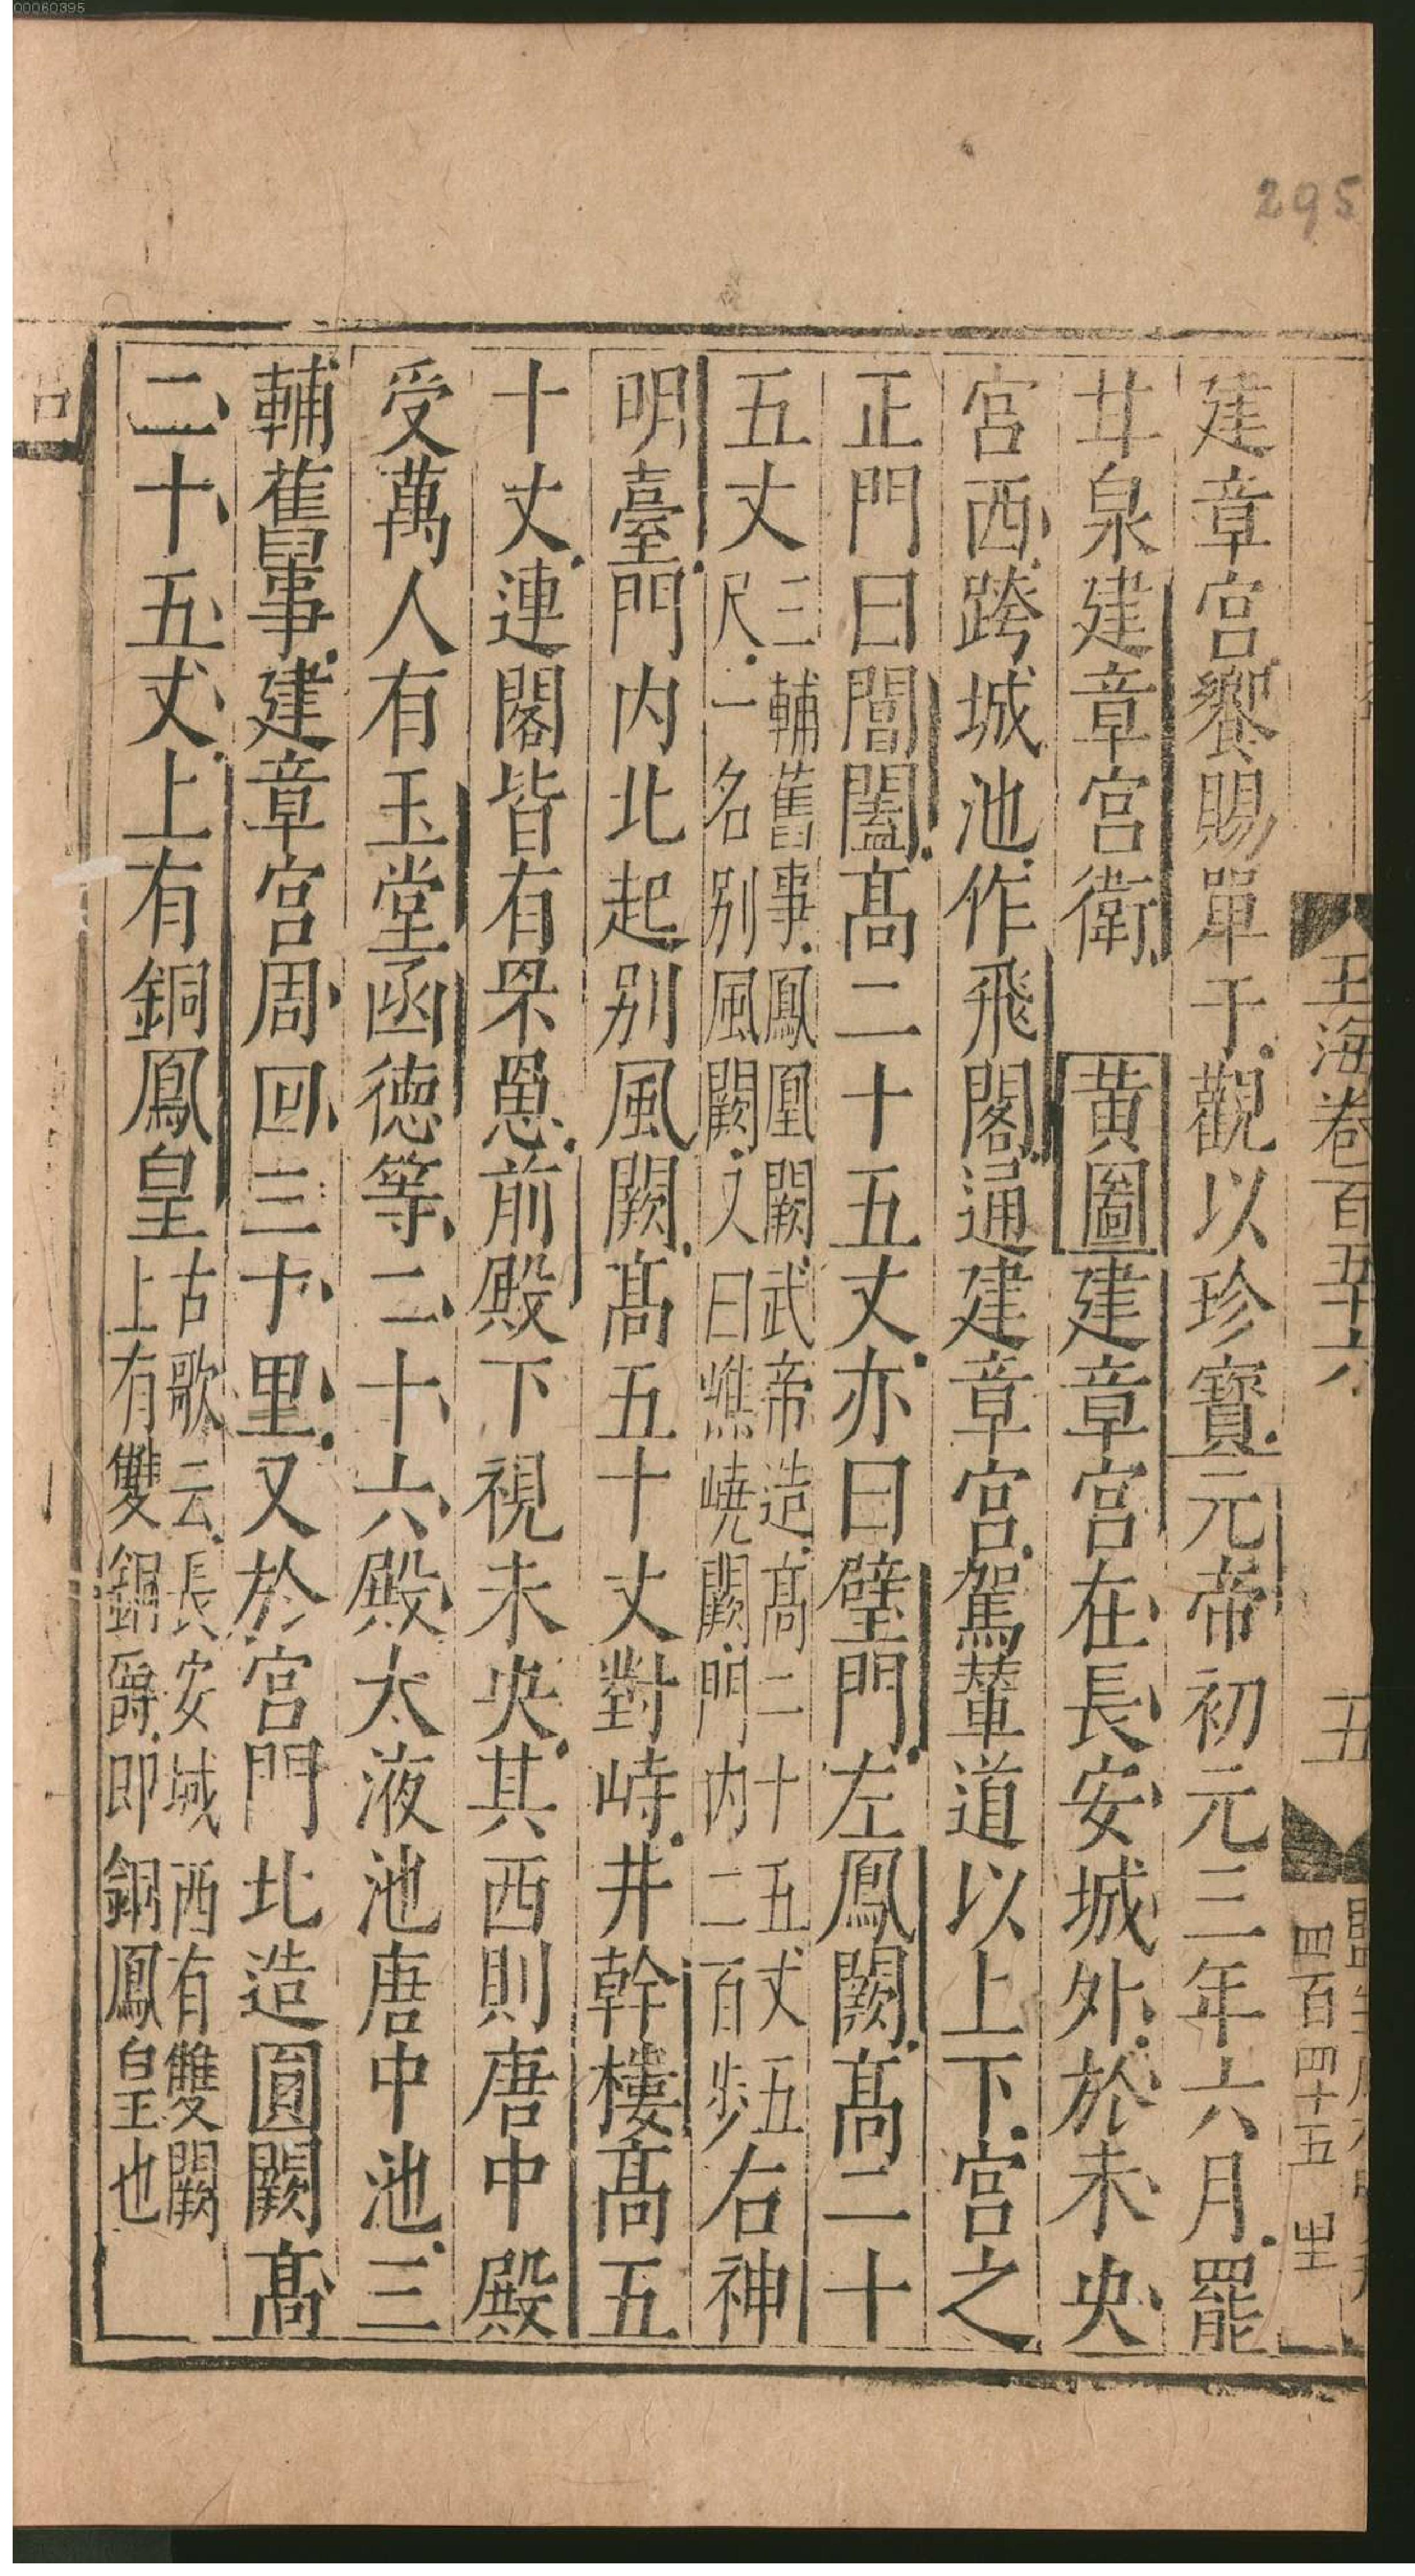 00060395
295
玉海卷百五十六
五
四百四十五
建章宮饗賜單于觀以珍寶元帝初元三年六月罷
甘泉建章宮衛　黄圖建章宮在長安城外於未央
宮西跨城池作飛閣通建章宮駕輦道以上下宮之
正門曰閶闔髙二十五丈亦曰璧門左鳳闕髙二十
五丈三輔舊事鳳凰闕武帝造髙二十五丈五尺一名别風闕又曰嶕嶢闕門内二百步右神
明臺門内北起别風闕髙五十丈對峙井幹樓髙五
十丈連閣皆有罘罳前殿下視未央其西則唐中殿
受萬人有玉堂函德等二十六殿太液池唐中池三
輔舊事建章宮周回三十里又於宮門北造圓闕髙
二十五丈上有銅鳳皇古歌云長安城西有雙闕上有雙銅爵即銅鳳皇也